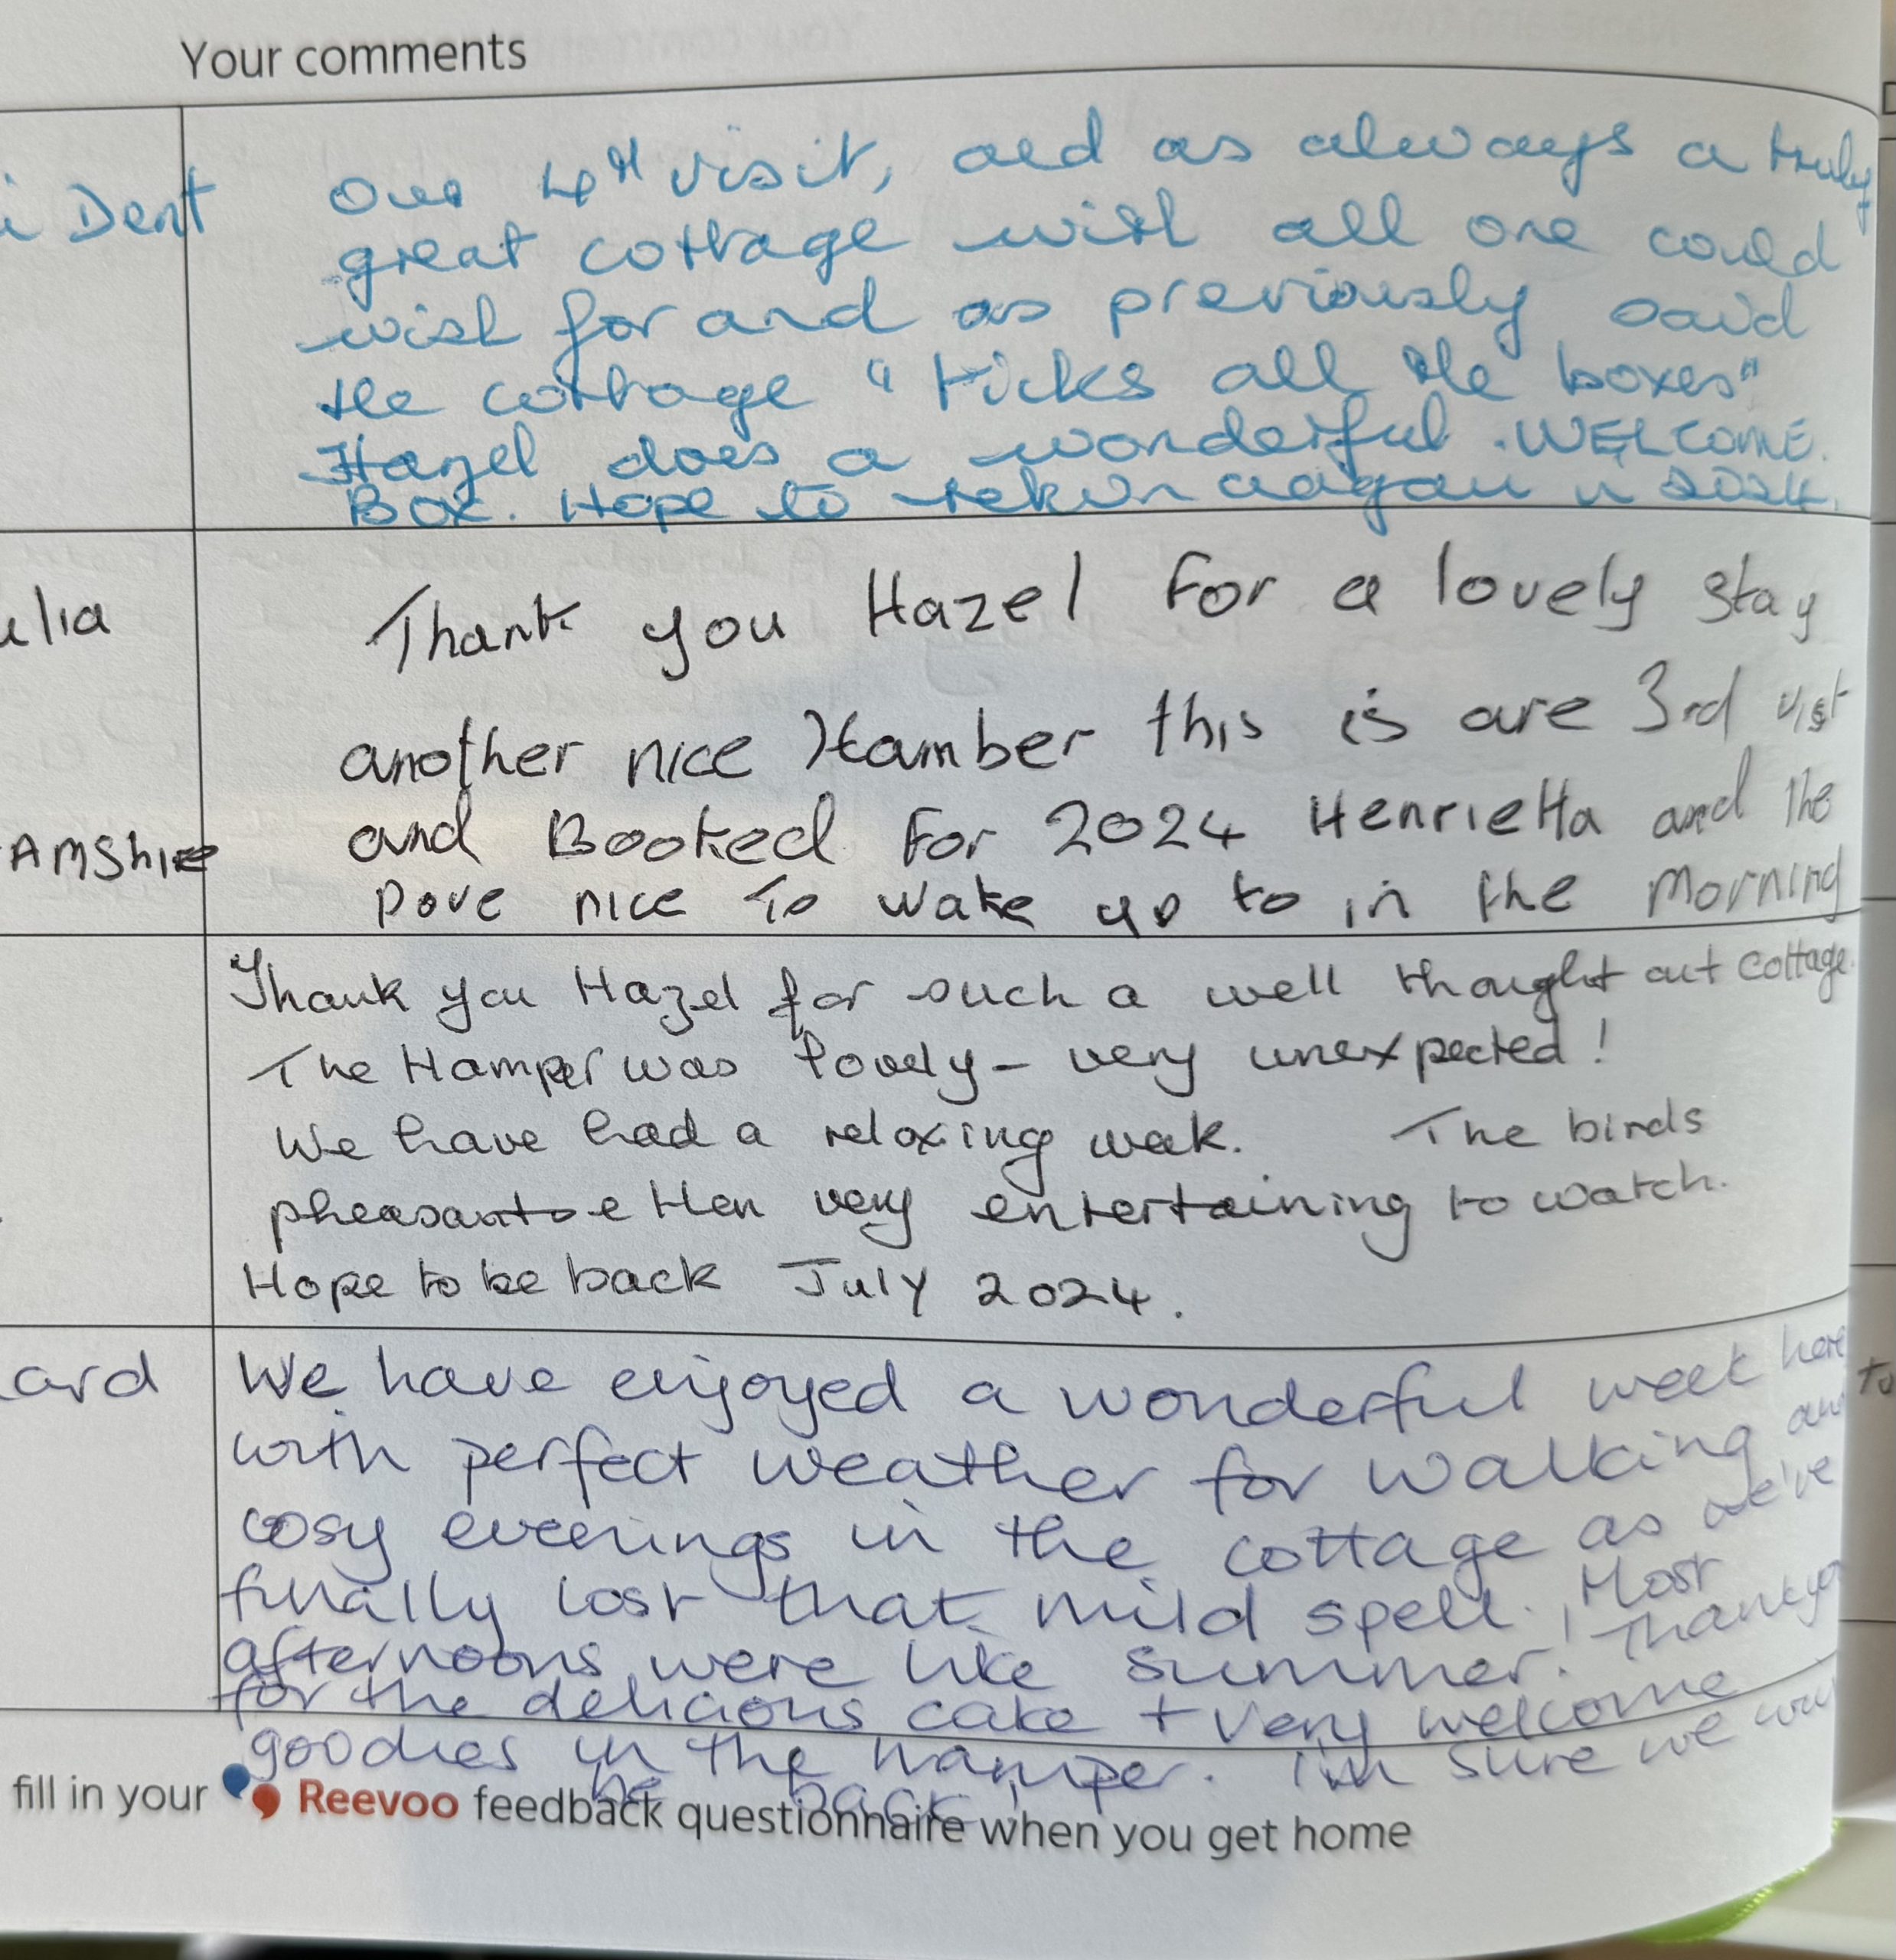 Your comments
i Dent
Our 4th visit, and as always a truly
great cottage with all one could
wish for and as previously said
the cottage "ticks all the boxes"
Hazel does a wonderful WELCOME
BOX. Hope to return aagain in 2024.
ulia
Thank you Hazel For a lovely stay
another nice Hamber this is are 3rd vist
AMShire
and Booked For 2024 Henrietta and the
Dove nice To wake up to in the Morning
Thank you Hazel for such a well thought out cottage.
The Hamper was lovely - very unexpected!
We have had a relaxing week. The birds
pheasants e Hen very entertaining to watch.
Hope to be back July 2024.
ard
We have enjoyed a wonderful week here
with perfect weather for walking and
cosy evenings in the cottage as we've
finally lost that mild spell. Most
afternoons were like summer! Thankyou
for the delicious cake + very welcome
goodies in the hamper. I'm sure we will
be back!
fill in your Reevoo feedback questionnaire when you get home